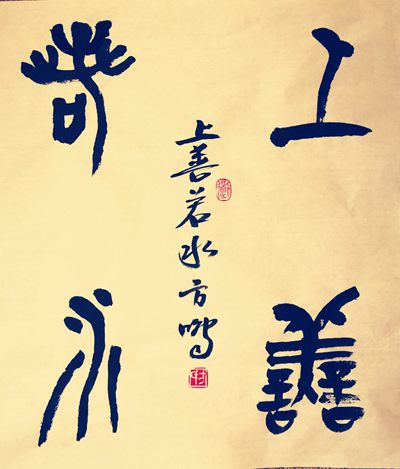 上善
若水
上善若水方鸣